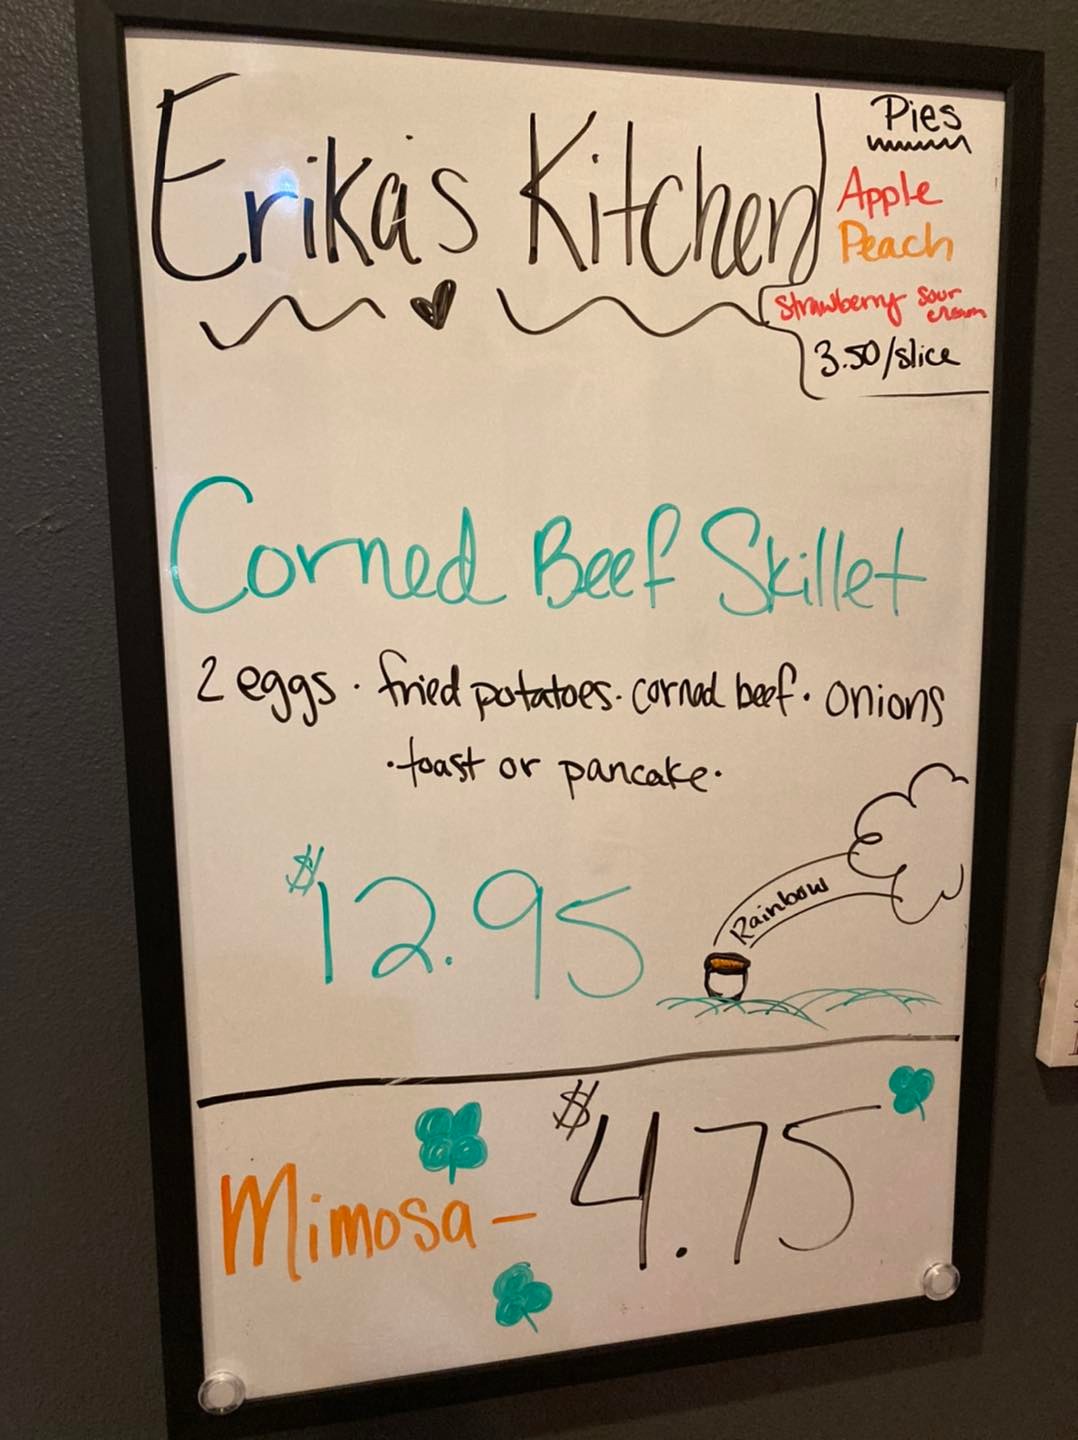 Erika's Kitchen
Pies
Apple
Peach
Strawberry sour
cream
3.50/slice
Corned Beef Skillet
2 eggs · fried potatoes · corned beef · onions
· toast or pancake ·
$12.95
Rainbow
Mimosa - $4.75